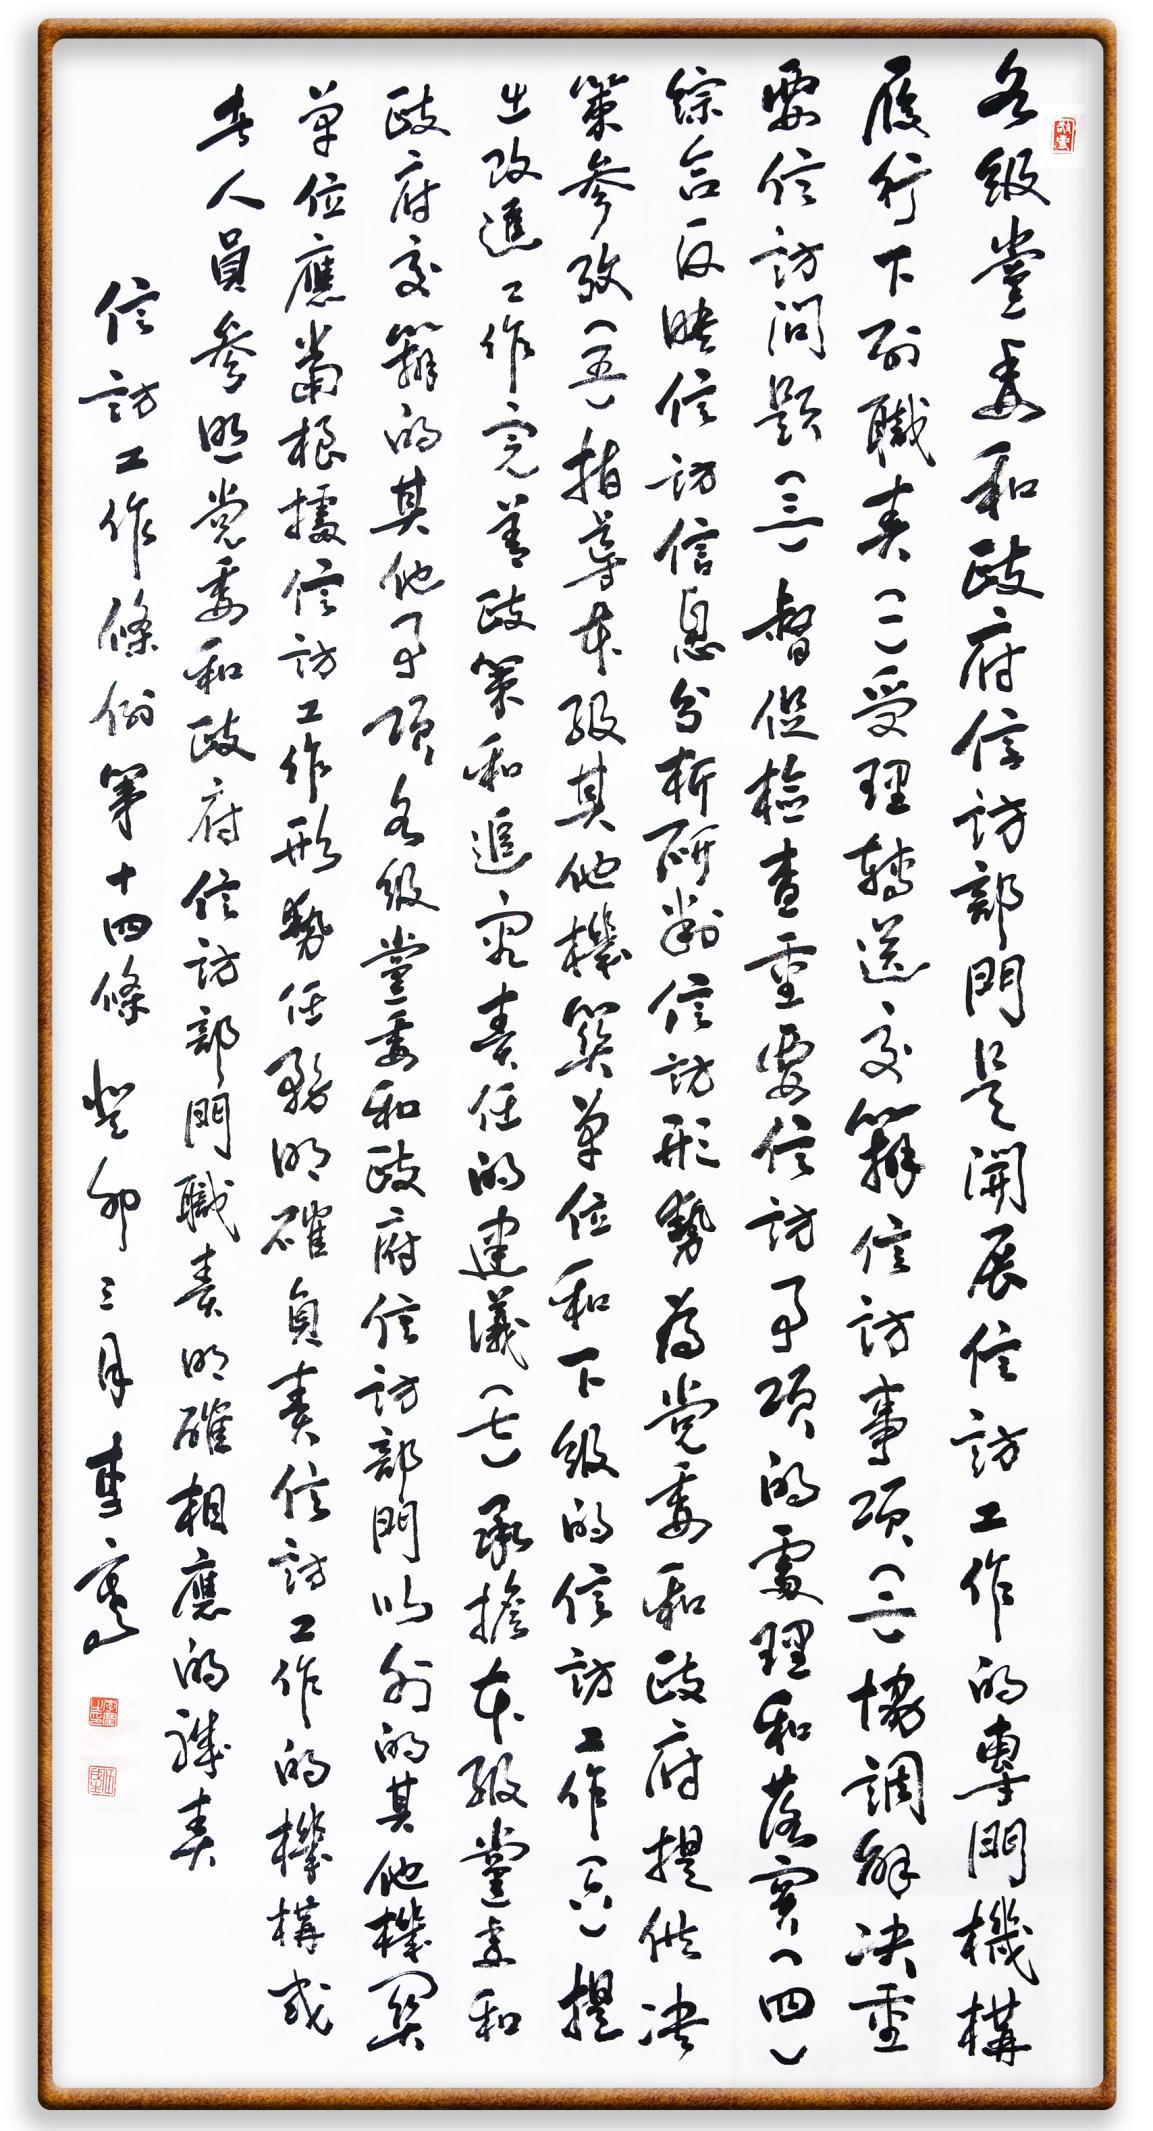 各級黨委和政府信訪部門是開展信訪工作的專門機構
履行下列職責(一)受理轉送交辦信訪事項(二)協調解决重
要信訪問題(三)督促檢查重要信訪事項的處理和落實(四)
綜合反映信訪信息分析研判信訪形勢為党委和政府提供决
策參考(五)指導本級其他機關單位和下級的信訪工作(六)提
出改進工作完善政策和追究責任的建議(七)承擔本級黨委和
政府交辦的其他事項各級黨委和政府信訪部門以外的其他機關
單位應當根據信訪工作形勢任務明確負責信訪工作的機構或
者人員參照党委和政府信訪部門職責明確相應的職責
信訪工作條例第十四條 癸卯三月李